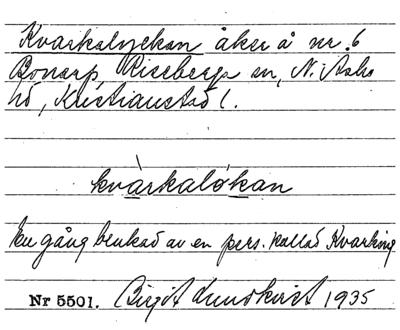 Kvarkalyckan åker å nr. 6
Bonarp, Riseberga sn, N. Åsbo
hd, Kristianstad l.
kvàrkaløkan
En gång brukad av en pers. kallad Kvarking
Nr 5501. Birgit Lundkvist 1935